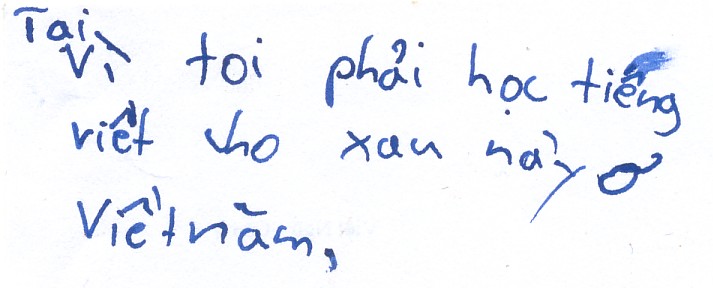 Tai
Vì toi phải học tiếng
viết cho xau này ơ
Việt năm,